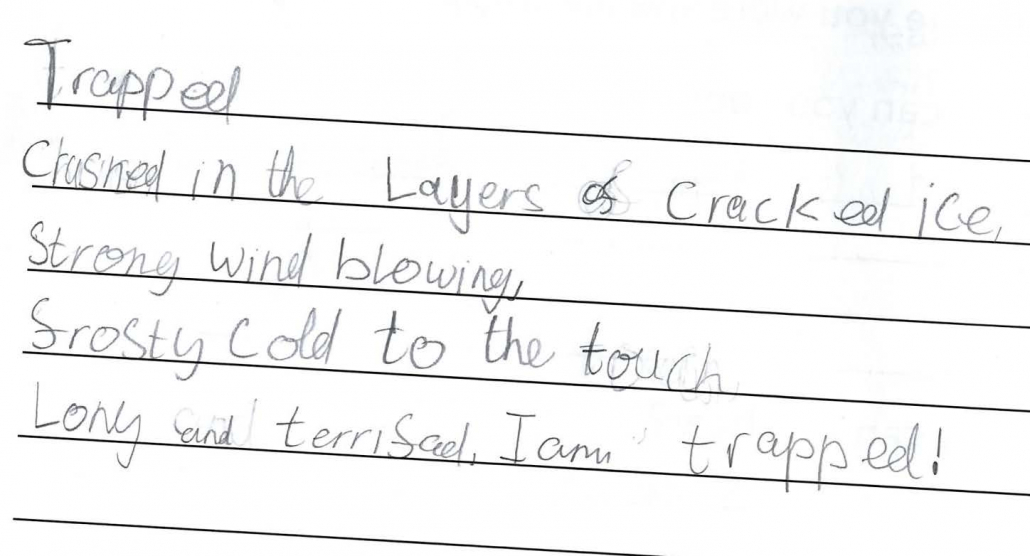 Trapped
Crushed in the Layers of Cracked ice,
Strong wind blowing,
frosty cold to the touch
Lony and terrifaed. I am trapped!